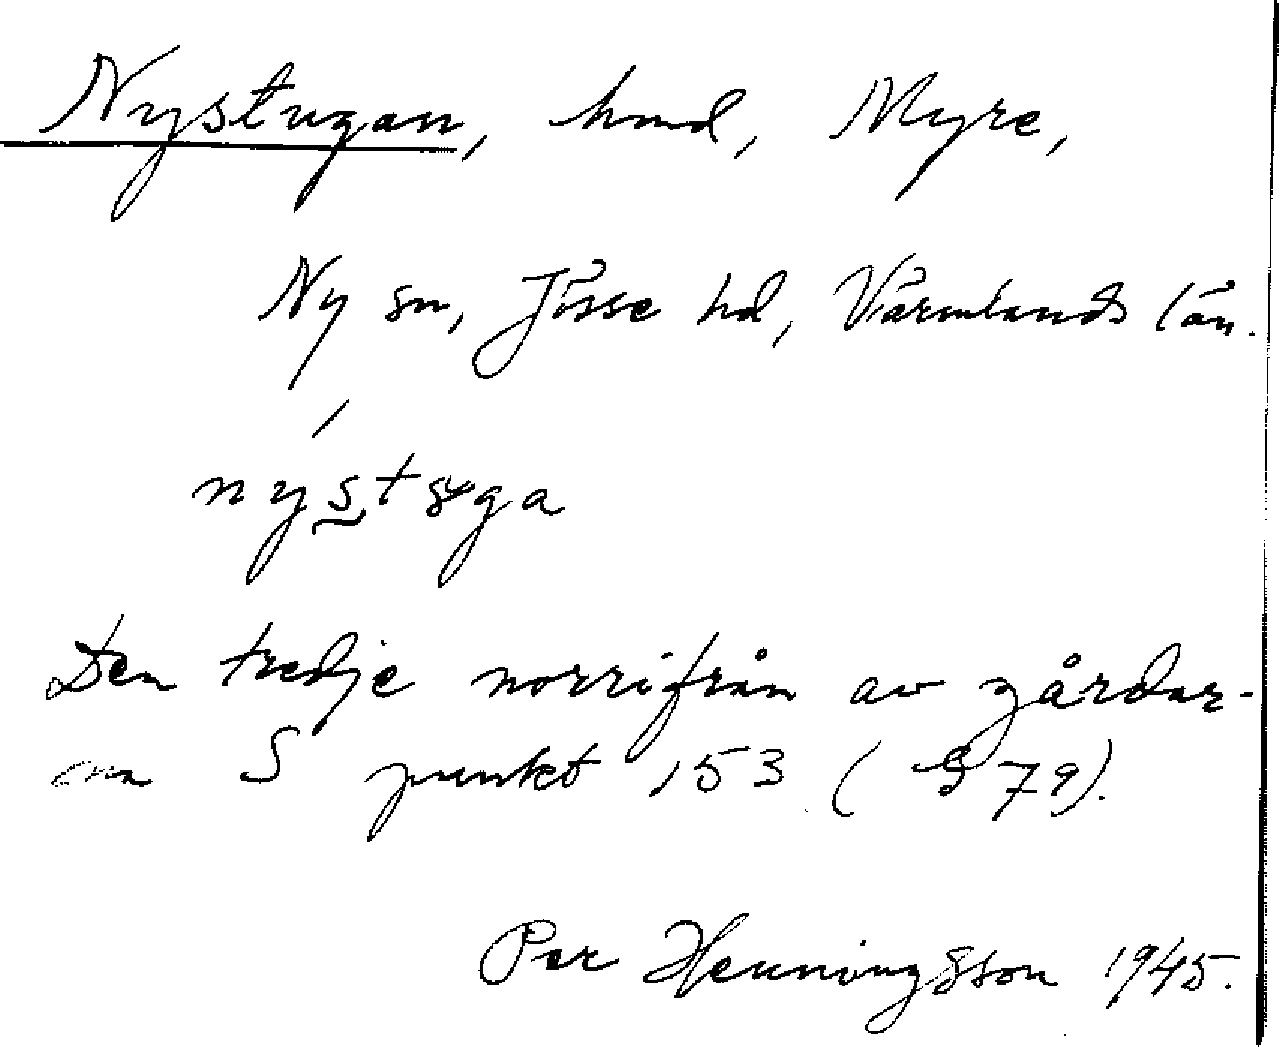 Nystugan, hmd, Myre,
Ny sn, Jösse hd, Värmlands län.
nystsga
Den tredje norrifrån av gårdar-
na S punkt 153 (§ 79).
Per Henningsson 1945.